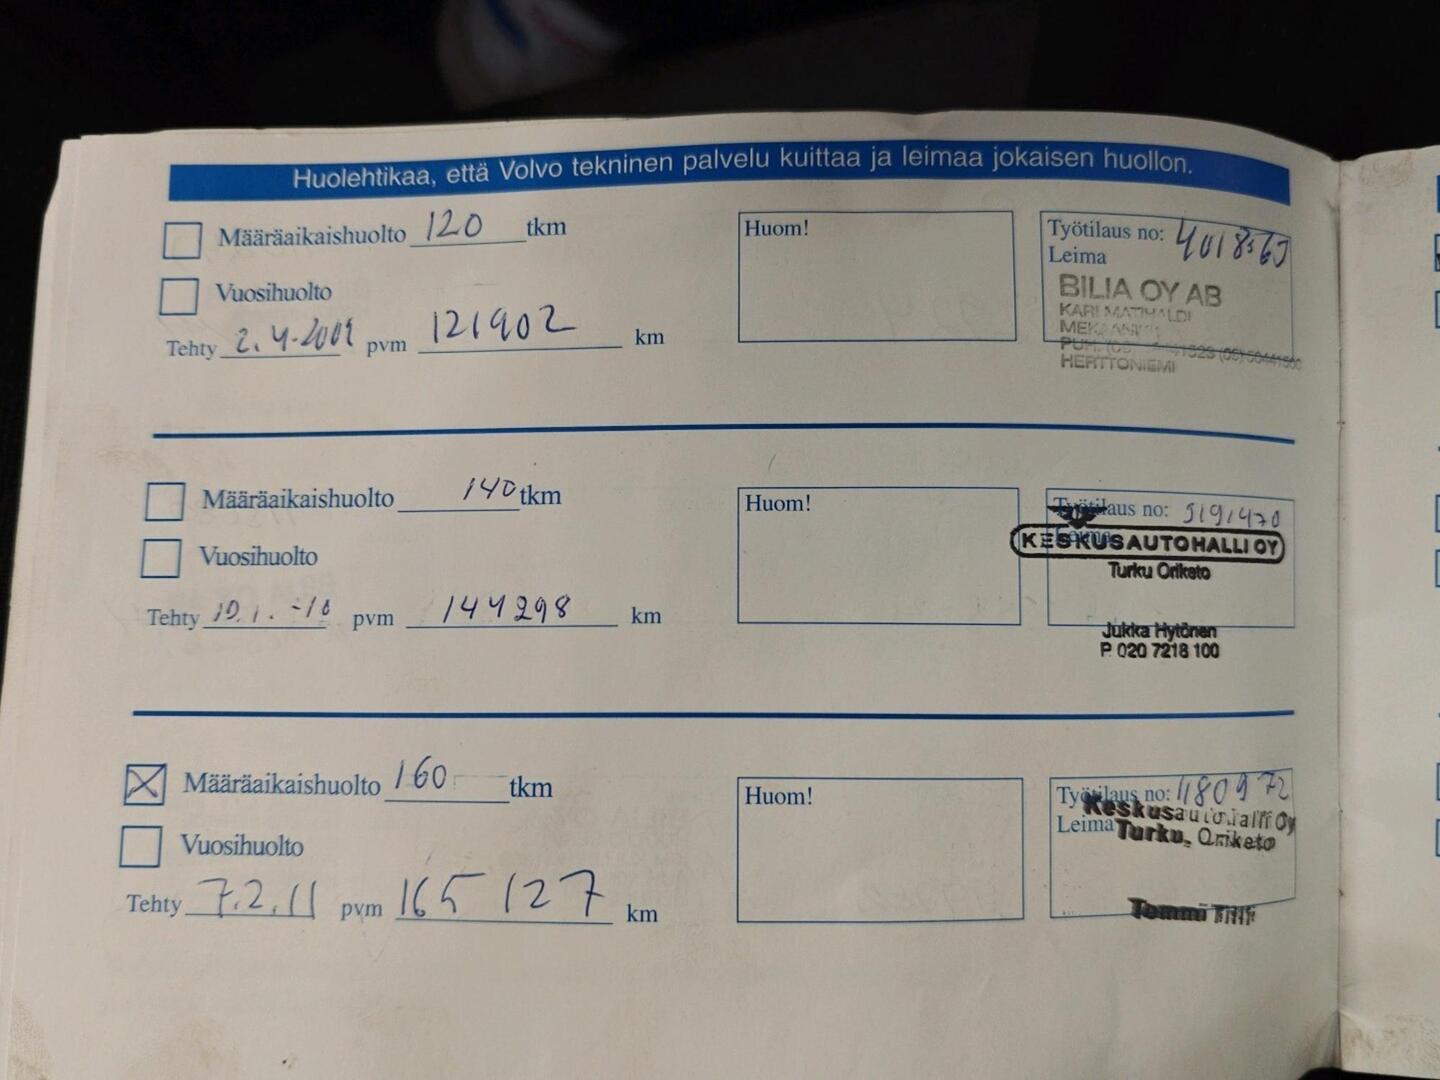 Huolehtikaa, että Volvo tekninen palvelu kuittaa ja leimaa jokaisen huollon.
Määräaikaishuolto 120 tkm
Vuosihuolto
Tehty 2.4.2009 pvm 121902 km
Huom!
Työtilaus no:
Leima
BILIA OY AB
HERTTONIEMI
Määräaikaishuolto 140 tkm
Vuosihuolto
Tehty pvm 144298 km
Huom!
Työtilaus no: 5191470
Leima
KESKUSAUTOHALLI OY
Turku Oriketo
Jukka Hytönen
P. 020 7218 100
Määräaikaishuolto 160 tkm
Vuosihuolto
Tehty 7.2.11 pvm 165 127 km
Huom!
Työtilaus no: 1180972
Leima
Keskusautohalli Oy
Turku, Oriketo
Tommi